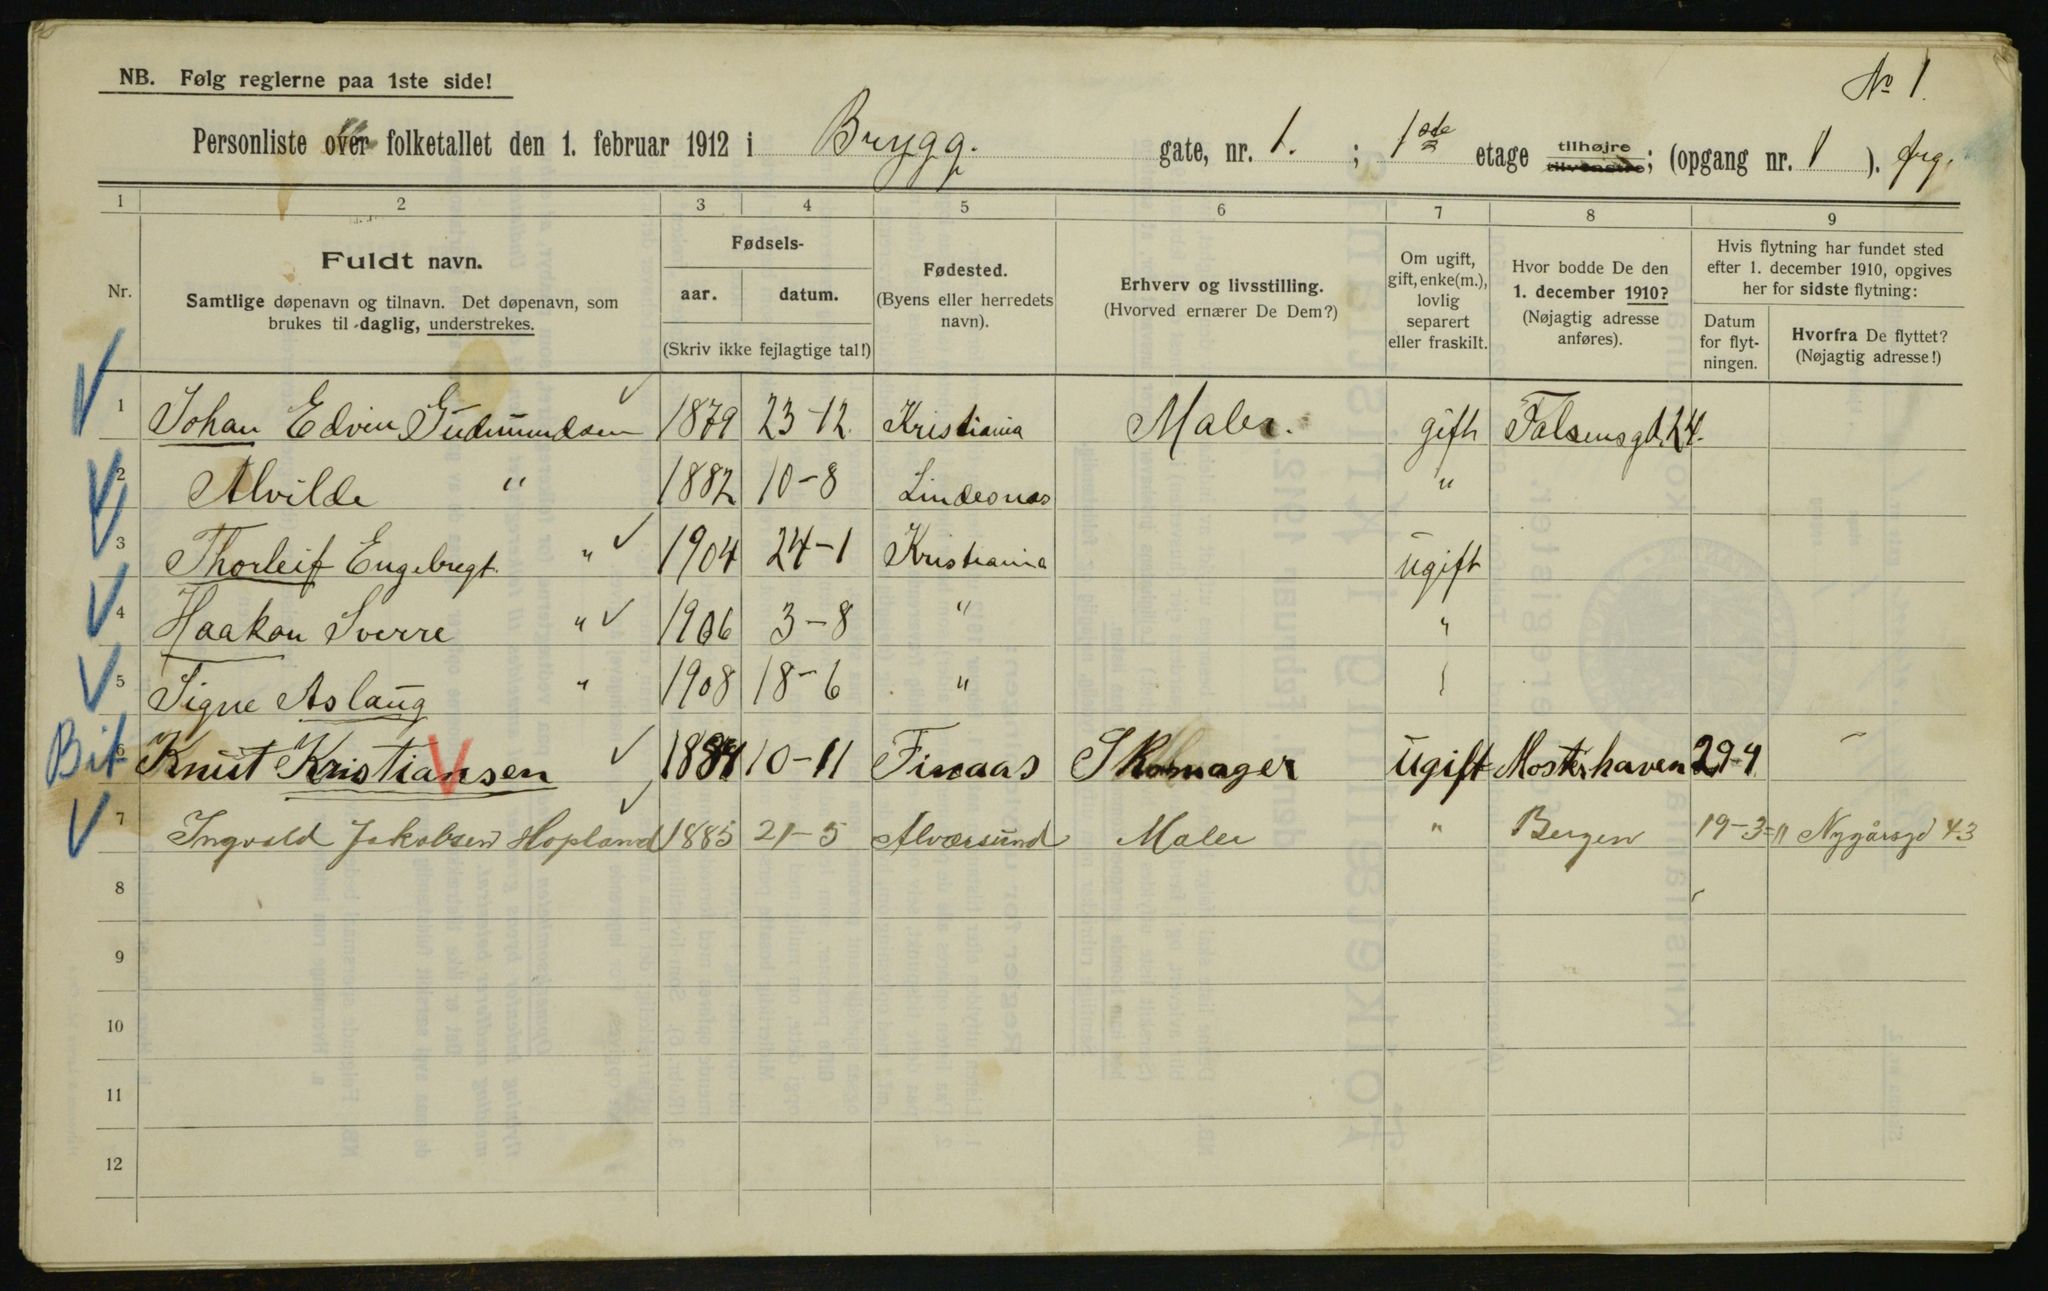 No 1.
NB. Følg reglerne paa 1ste side!
Personliste over folketallet den 1. februar 1912 i Brygg. gate, nr. 1. ; 1ste etage tilhøjre tilvenstre; (opgang nr. 1 ).
1 2 3 4 5 6 7 8 9
Nr.
Fuldt navn.
Samtlige døpenavn og tilnavn. Det døpenavn, som
brukes til daglig, understrekes.
Fødsels-
aar. datum.
(Skriv ikke fejlagtige tal!)
Fødested.
(Byens eller herredets
navn).
Erhverv og livsstilling.
(Hvorved ernærer De Dem?)
Om ugift,
gift, enke(m.),
lovlig
separert
eller fraskilt.
Hvor bodde De den
1. december 1910?
(Nøjagtig adresse
anføres).
Hvis flytning har fundet sted
efter 1. december 1910, opgives
her for sidste flytning:
Datum
for flyt-
ningen.
Hvorfra De flyttet?
(Nøjagtig adresse!)
1 Johan Edvin Gudmundsen 1879 23-12. Kristiania Maler. gift Falsensgd. 24.
2 Alvilde " 1882 10-8 Lindesnas "
3 Thorleif Engebregt. " 1904 24-1 Kristiania ugift
4 Haakon Sverre " 1906 3-8 " "
5 Signe Aslaug " 1908 18-6 "
Bit 6 Knut Kristiansen 10-11 Finaas Skomager ugift Mosterhaven 29-4 -
7 Ingvald Jakobsen Hopland 1885 21-5 Alværsund Maler " Bergen 19-3-11 Nygårsgd 43
8
9
10
11
12